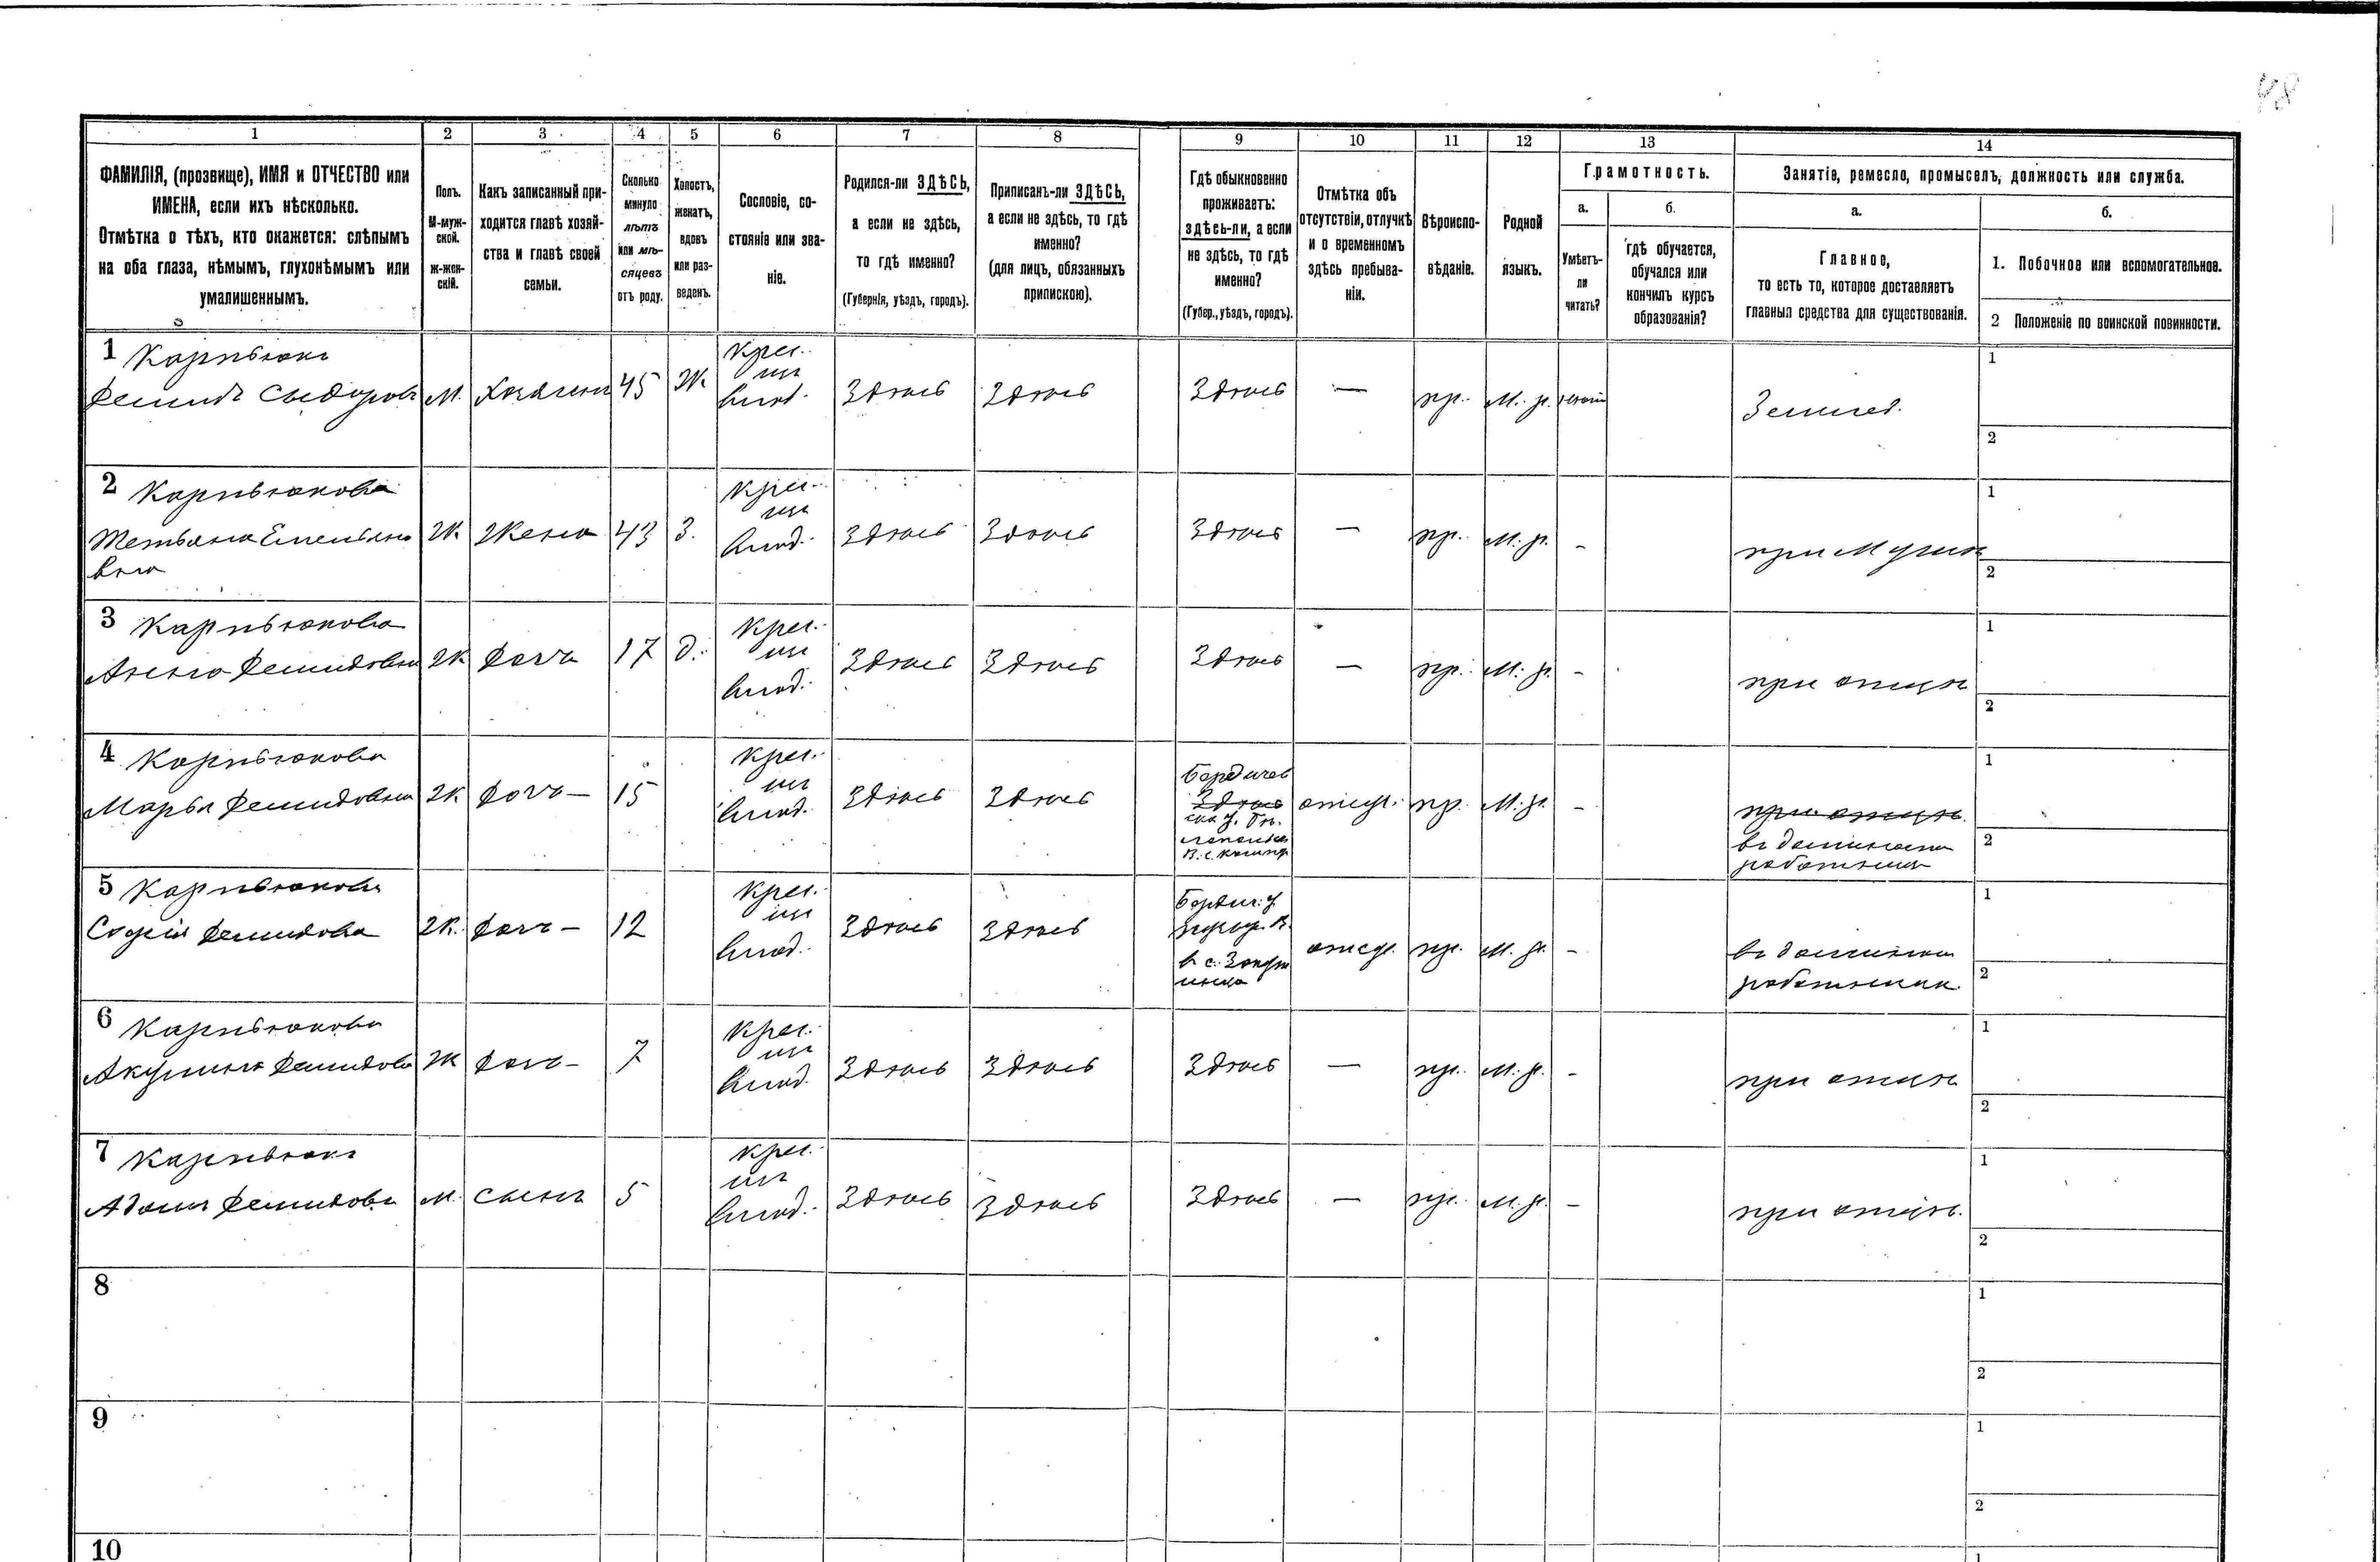 48
1 2 3 4 5 6 7 8 9 10 11 12 13 14
ФАМИЛІЯ, (прозвище), ИМЯ и ОТЧЕСТВО или
ИМЕНА, если ихъ нѣсколько.
Отмѣтка о тѣхъ, кто окажется: слѣпымъ
на оба глаза, нѣмымъ, глухонѣмымъ или
умалишеннымъ.
Полъ.
М-муж-
ской.
Ж-жен-
скій.
Какъ записанный при-
ходится главѣ хозяй-
ства и главѣ своей
семьи.
Сколько
минуло
лѣтъ
или мѣ-
сяцевъ
отъ роду.
Холостъ,
женатъ,
вдовъ
или раз-
веденъ.
Сословіе, со-
стояніе или зва-
ніе.
Родился-ли ЗДѢСЬ,
а если не здѣсь,
то гдѣ именно?
(Губернія, уѣздъ, городъ).
Приписанъ-ли ЗДѢСЬ,
а если не здѣсь, то гдѣ
именно?
(для лицъ, обязанныхъ
припискою).
Гдѣ обыкновенно
проживаетъ:
здѣсь-ли, а если
не здѣсь, то гдѣ
именно?
(Губер., уѣздъ, городъ).
Отмѣтка объ
отсутствіи, отлучкѣ
и о временномъ
здѣсь пребыва-
ніи.
Вѣроиспо-
вѣданіе.
Родной
языкъ.
Грамотность.
а.
Умѣетъ-
ли
читать?
б.
гдѣ обучается,
обучался или
кончилъ курсъ
образованія?
Занятіе, ремесло, промыселъ, должность или служба.
а.
Главное,
то есть то, которое доставляетъ
главныя средства для существованія.
б.
1. Побочное или вспомогательное.
2 Положеніе по воинской повинности.
1 Карпѣюкъ
Демидъ Сыдоровъ
М.
Хозяинъ
45
Ж
Крес.
из
влад.
Здѣсь
Здѣсь
Здѣсь
—
пр.
М. р.
Землед.
1
2
2 Карпѣюкова
Тетьяна Емельяно
вна
Ж
Жена
43
З.
Крес.
из
влад.
Здѣсь
Здѣсь
Здѣсь
—
пр.
М. р.
-
при Мужѣ
1
2
3 Карпѣюкова
Анна Демидовна
Ж
Дочь
17
д.
Крес.
из
влад.
Здѣсь
Здѣсь
Здѣсь
—
пр.
М. р.
-
при отцѣ
1
2
4 Карпѣюкова
Марья Демидовна
Ж
Дочь —
15
Крес.
из
влад.
Здѣсь
Здѣсь
Бердичев
Здѣсь
ска у.
отсут.
пр.
М. р.
-
при отцѣ.
въ
работница
1
2
5 Карпѣюкова
Софія Демидова
Ж.
Дочь —
12
Крес.
из
влад.
Здѣсь
Здѣсь
Бердич. у
в с.
отсут.
пр.
М. р.
-
въ
работница
1
2
6 Карпѣюкова
Акулина Демидова
Ж
Дочь —
7
Крес.
из
влад.
Здѣсь
Здѣсь
Здѣсь
—
пр.
М. р.
-
при отцѣ
1
2
7 Карпѣюкъ
Адамъ Демидовъ
М.
Сынъ
5
Крес.
из
влад.
Здѣсь
Здѣсь
Здѣсь
—
пр.
М. р.
-
при отцѣ.
1
2
8
1
2
9
1
2
10
1